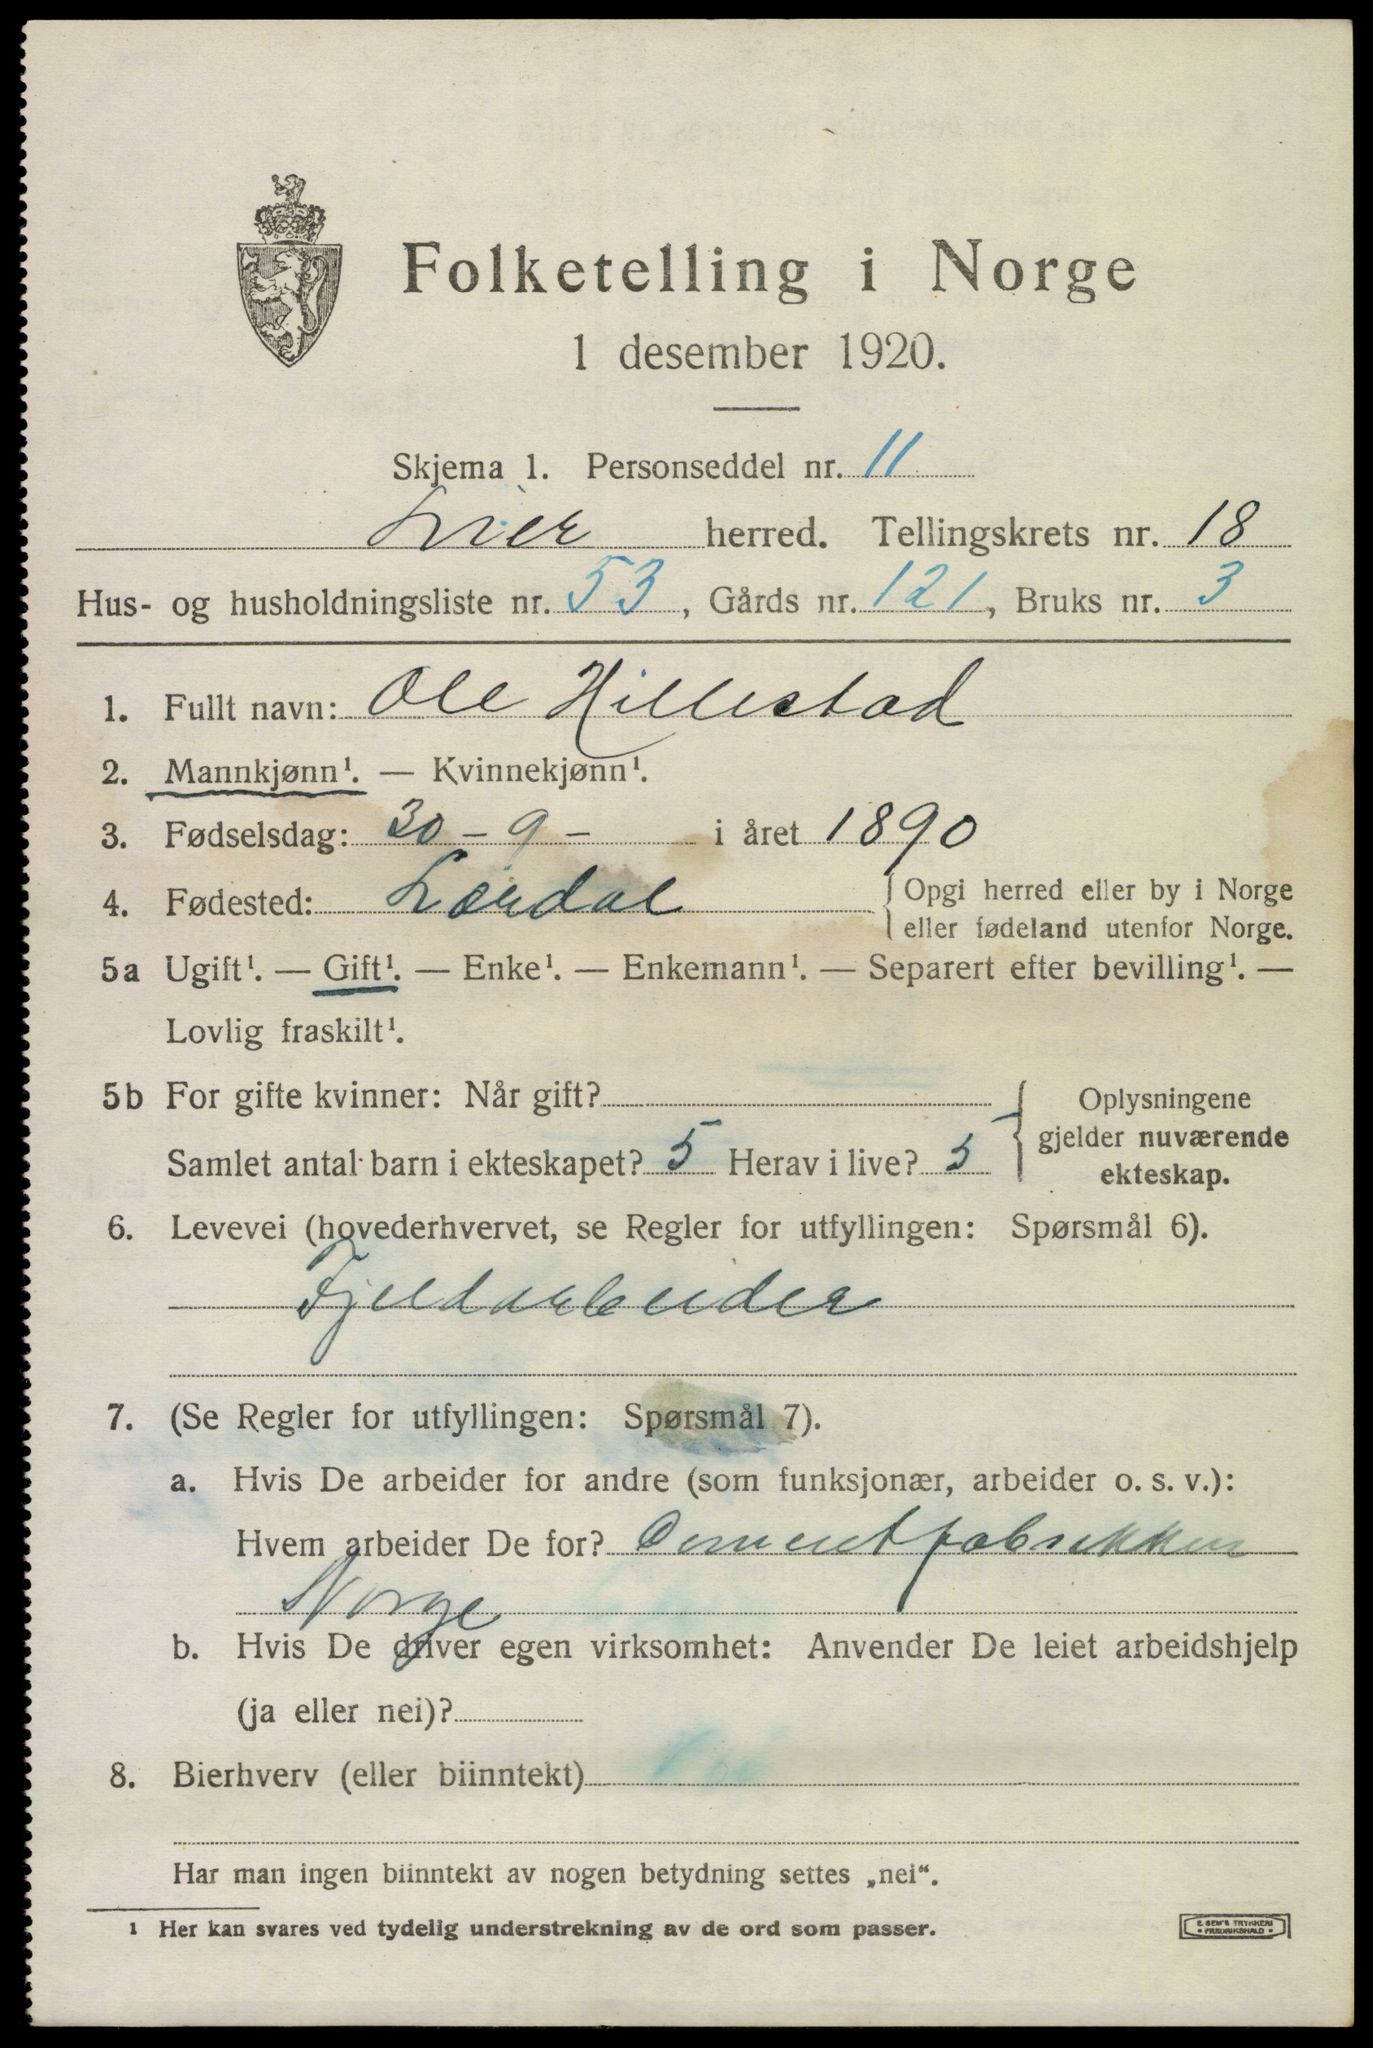 Folketelling i Norge
1 desember 1920.
Skjema 1. Personseddel nr. 11
Lier herred. Tellingskrets nr. 18
Hus- og husholdningsliste nr. 53, Gårds nr. 121, Bruks nr. 3
1. Fullt navn: Ole Hillestad
2. Mannkjønn¹. — Kvinnekjønn¹.
3. Fødselsdag: 30 - 9 - i året 1890
4. Fødested: Lærdal
Opgi herred eller by i Norge
eller fødeland utenfor Norge.
5a Ugift¹. — Gift¹. — Enke¹. — Enkemann¹. — Separert efter bevilling¹. —
Lovlig fraskilt¹.
5b For gifte kvinner: Når gift?
Samlet antal barn i ekteskapet? 5 Herav i live? 5
Oplysningene
gjelder nuværende
ekteskap.
6. Levevei (hovederhvervet, se Regler for utfyllingen: Spørsmål 6).
Fjeldarbeider
7. (Se Regler for utfyllingen: Spørsmål 7).
a. Hvis De arbeider for andre (som funksjonær, arbeider o. s. v.):
Hvem arbeider De for? Cementfabrikken
Norge
b. Hvis De driver egen virksomhet: Anvender De leiet arbeidshjelp
(ja eller nei)?
8. Bierhverv (eller biinntekt)
Har man ingen biinntekt av nogen betydning settes „nei“.
¹ Her kan svares ved tydelig understrekning av de ord som passer.
E. SEM'S TRYKKERI
• FREDRIKSHALD •